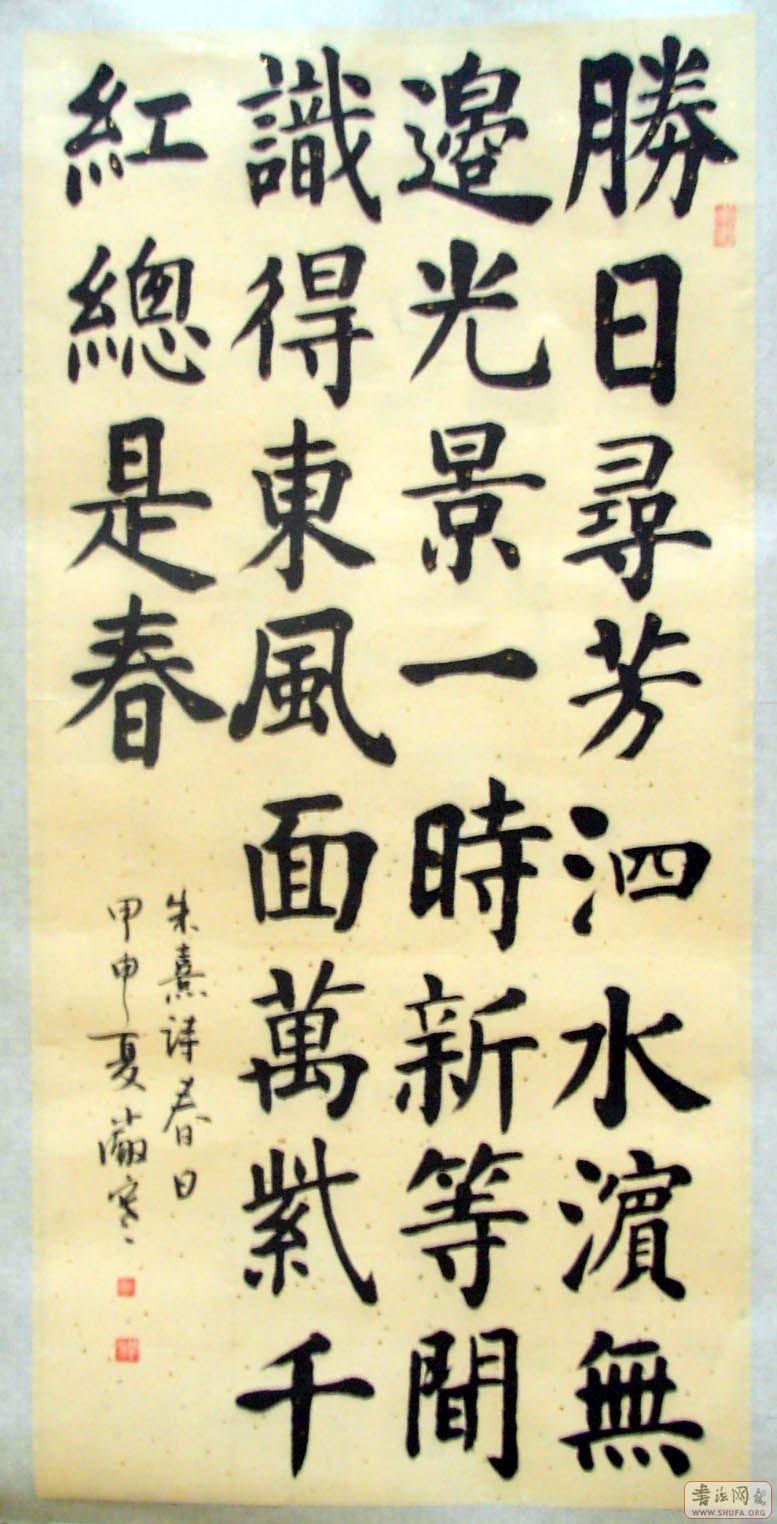 勝日尋芳泗水濱無
邊光景一時新等閒
識得東風面萬紫千
紅總是春
朱熹詩春日
甲申夏
書法网
WWW.SHUFA.ORG